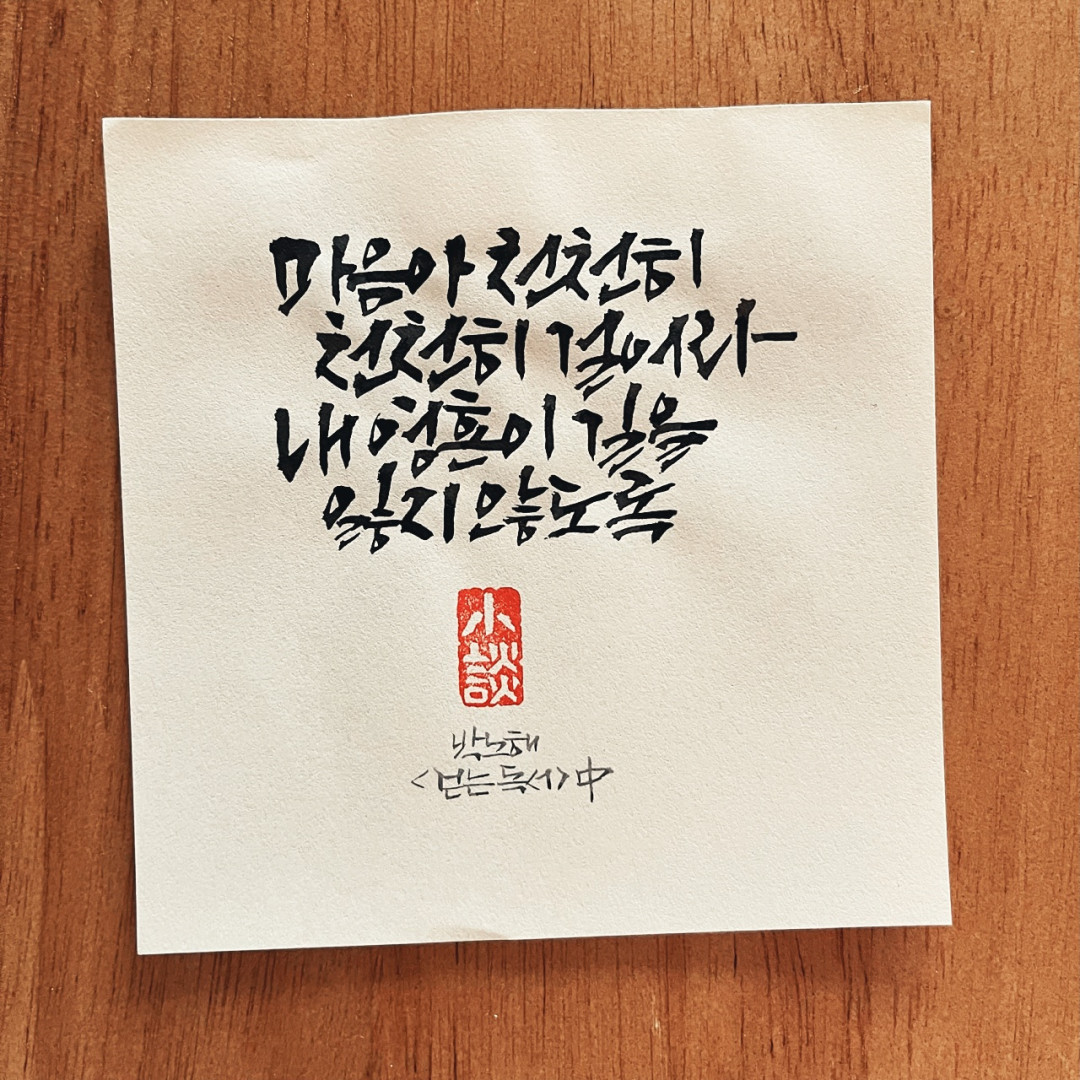 마음아 천천히
천천히 걸어라
내 영혼이 길을
잃지 않도록
小談
박노해
<걷는 독서>中